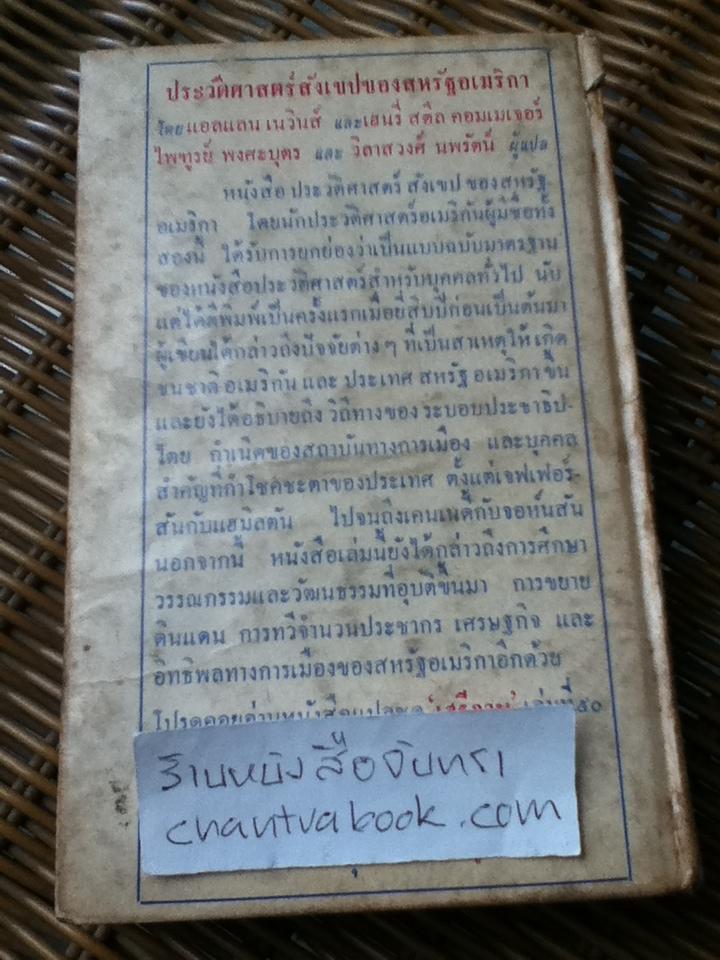 ประวัติศาสตร์สังเขปของสหรัฐอเมริกา
โดย แอลแลน เนวินส์ และ เฮนรี่ สตีล คอมเมเจอร์
ไพฑูรย์ พงศะบุตร และ วิลาสวงศ์ นพรัตน์ ผู้แปล
หนังสือ ประวัติศาสตร์ สังเขป ของ สหรัฐ-
อเมริกา โดยนักประวัติศาสตร์อเมริกันผู้มีชื่อทั้ง
สองนี้ ได้รับการยกย่องว่าเป็นแบบฉบับมาตรฐาน
ของหนังสือประวัติศาสตร์สำหรับบุคคลทั่วไป นับ
แต่ได้ตีพิมพ์เป็นครั้งแรกเมื่อยี่สิบปีก่อนเป็นต้นมา
ผู้เขียนได้กล่าวถึงปัจจัยต่าง ๆ ที่เป็นสาเหตุให้เกิด
ชนชาติ อเมริกัน และ ประเทศ สหรัฐ อเมริกา ขึ้น
และยังได้อธิบายถึง วิถีทางของ ระบอบประชาธิป-
ไตย กำเนิดของสถาบันทางการเมือง และบุคคล
สำคัญที่กำโชคชะตาของประเทศ ตั้งแต่เจฟเฟอร์-
สันกับแฮมิลตัน ไปจนถึงเคนเนดี้กับจอห์นสัน
นอกจากนี้ หนังสือเล่มนี้ยังได้กล่าวถึงการศึกษา
วรรณกรรมและวัฒนธรรมที่อุบัติขึ้นมา การขยาย
ดินแดน การทวีจำนวนประชากร เศรษฐกิจ และ
อิทธิพลทางการเมืองของสหรัฐอเมริกาอีกด้วย
โปรดคอยอ่านหนังสือแปลชุด 'เสรีภาพ' เล่มที่ ๕๐
ร้านหนังสือจันทรา
chantrabook.com